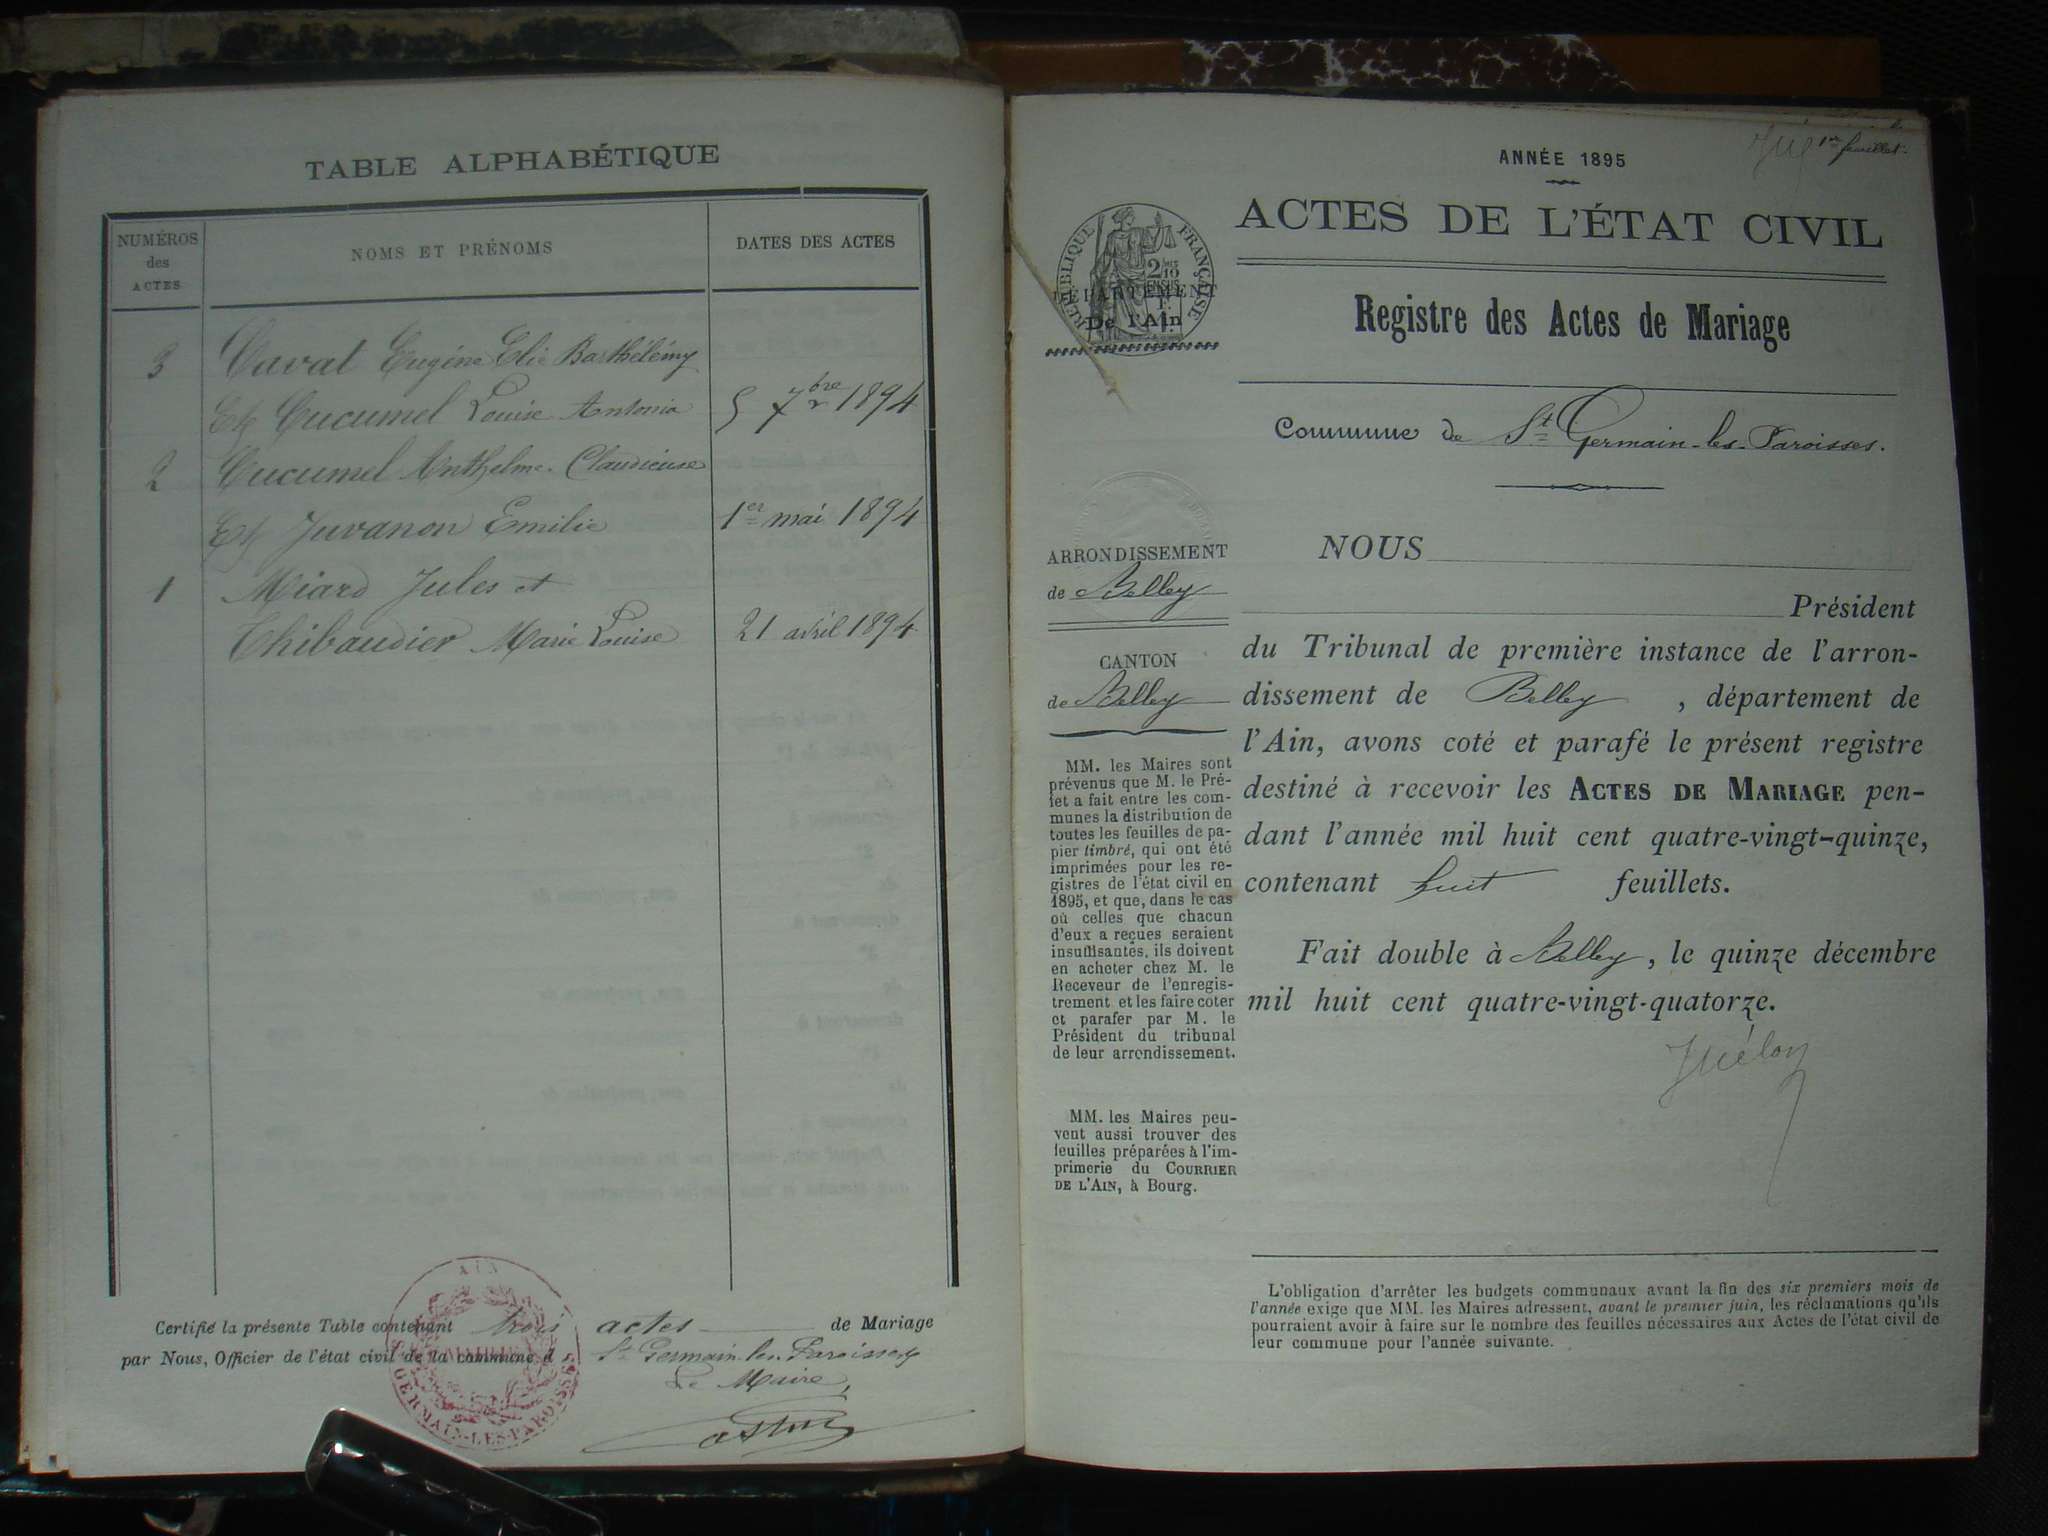 TABLE ALPHABÉTIQUE
NUMÉROS
des
ACTES
NOMS ET PRÉNOMS
DATES DES ACTES
3 Cavat Eugène Elie Barthélémy
Et Cucumel Louise Antonia 5 7bre 1894
2 Cucumel Anthelme Claudieuse
Et Juvanon Emilie 1er mai 1894
1 Miard Jules et
Thibaudier Marie Louise 21 avril 1894
Certifié la présente Table contenant trois actes de Mariage
par Nous, Officier de l'état civil de la commune d St Germain-les-Paroisses
Le Maire,
AIN
GERMAIN-LES-PAROISSES
1er feuillet.
ANNÉE 1895
ACTES DE L'ÉTAT CIVIL
RÉPUBLIQUE FRANÇAISE
DÉPARTEMENT
De l'Ain
Registre des Actes de Mariage
Commune de St Germain-les-Paroisses.
ARRONDISSEMENT
de Belley
CANTON
de Belley
MM. les Maires sont
prévenus que M. le Pré-
fet a fait entre les com-
munes la distribution de
toutes les feuilles de pa-
pier timbré, qui ont été
imprimées pour les re-
gistres de l'état civil en
1895, et que, dans le cas
où celles que chacun
d'eux a reçues seraient
insuffisantes, ils doivent
en acheter chez M. le
Receveur de l'enregis-
trement et les faire coter
et parafer par M. le
Président du tribunal
de leur arrondissement.
MM. les Maires peu-
vent aussi trouver des
feuilles préparées à l'im-
primerie du COURRIER
DE L'AIN, à Bourg.
NOUS
Président
du Tribunal de première instance de l'arron-
dissement de Belley , département de
l'Ain, avons coté et parafé le présent registre
destiné à recevoir les ACTES DE MARIAGE pen-
dant l'année mil huit cent quatre-vingt-quinze,
contenant huit feuillets.
Fait double à Belley, le quinze décembre
mil huit cent quatre-vingt-quatorze.
L'obligation d'arrêter les budgets communaux avant la fin des six premiers mois de
l'année exige que MM. les Maires adressent, avant le premier juin, les réclamations qu'ils
pourraient avoir à faire sur le nombre des feuilles nécessaires aux Actes de l'état civil de
leur commune pour l'année suivante.